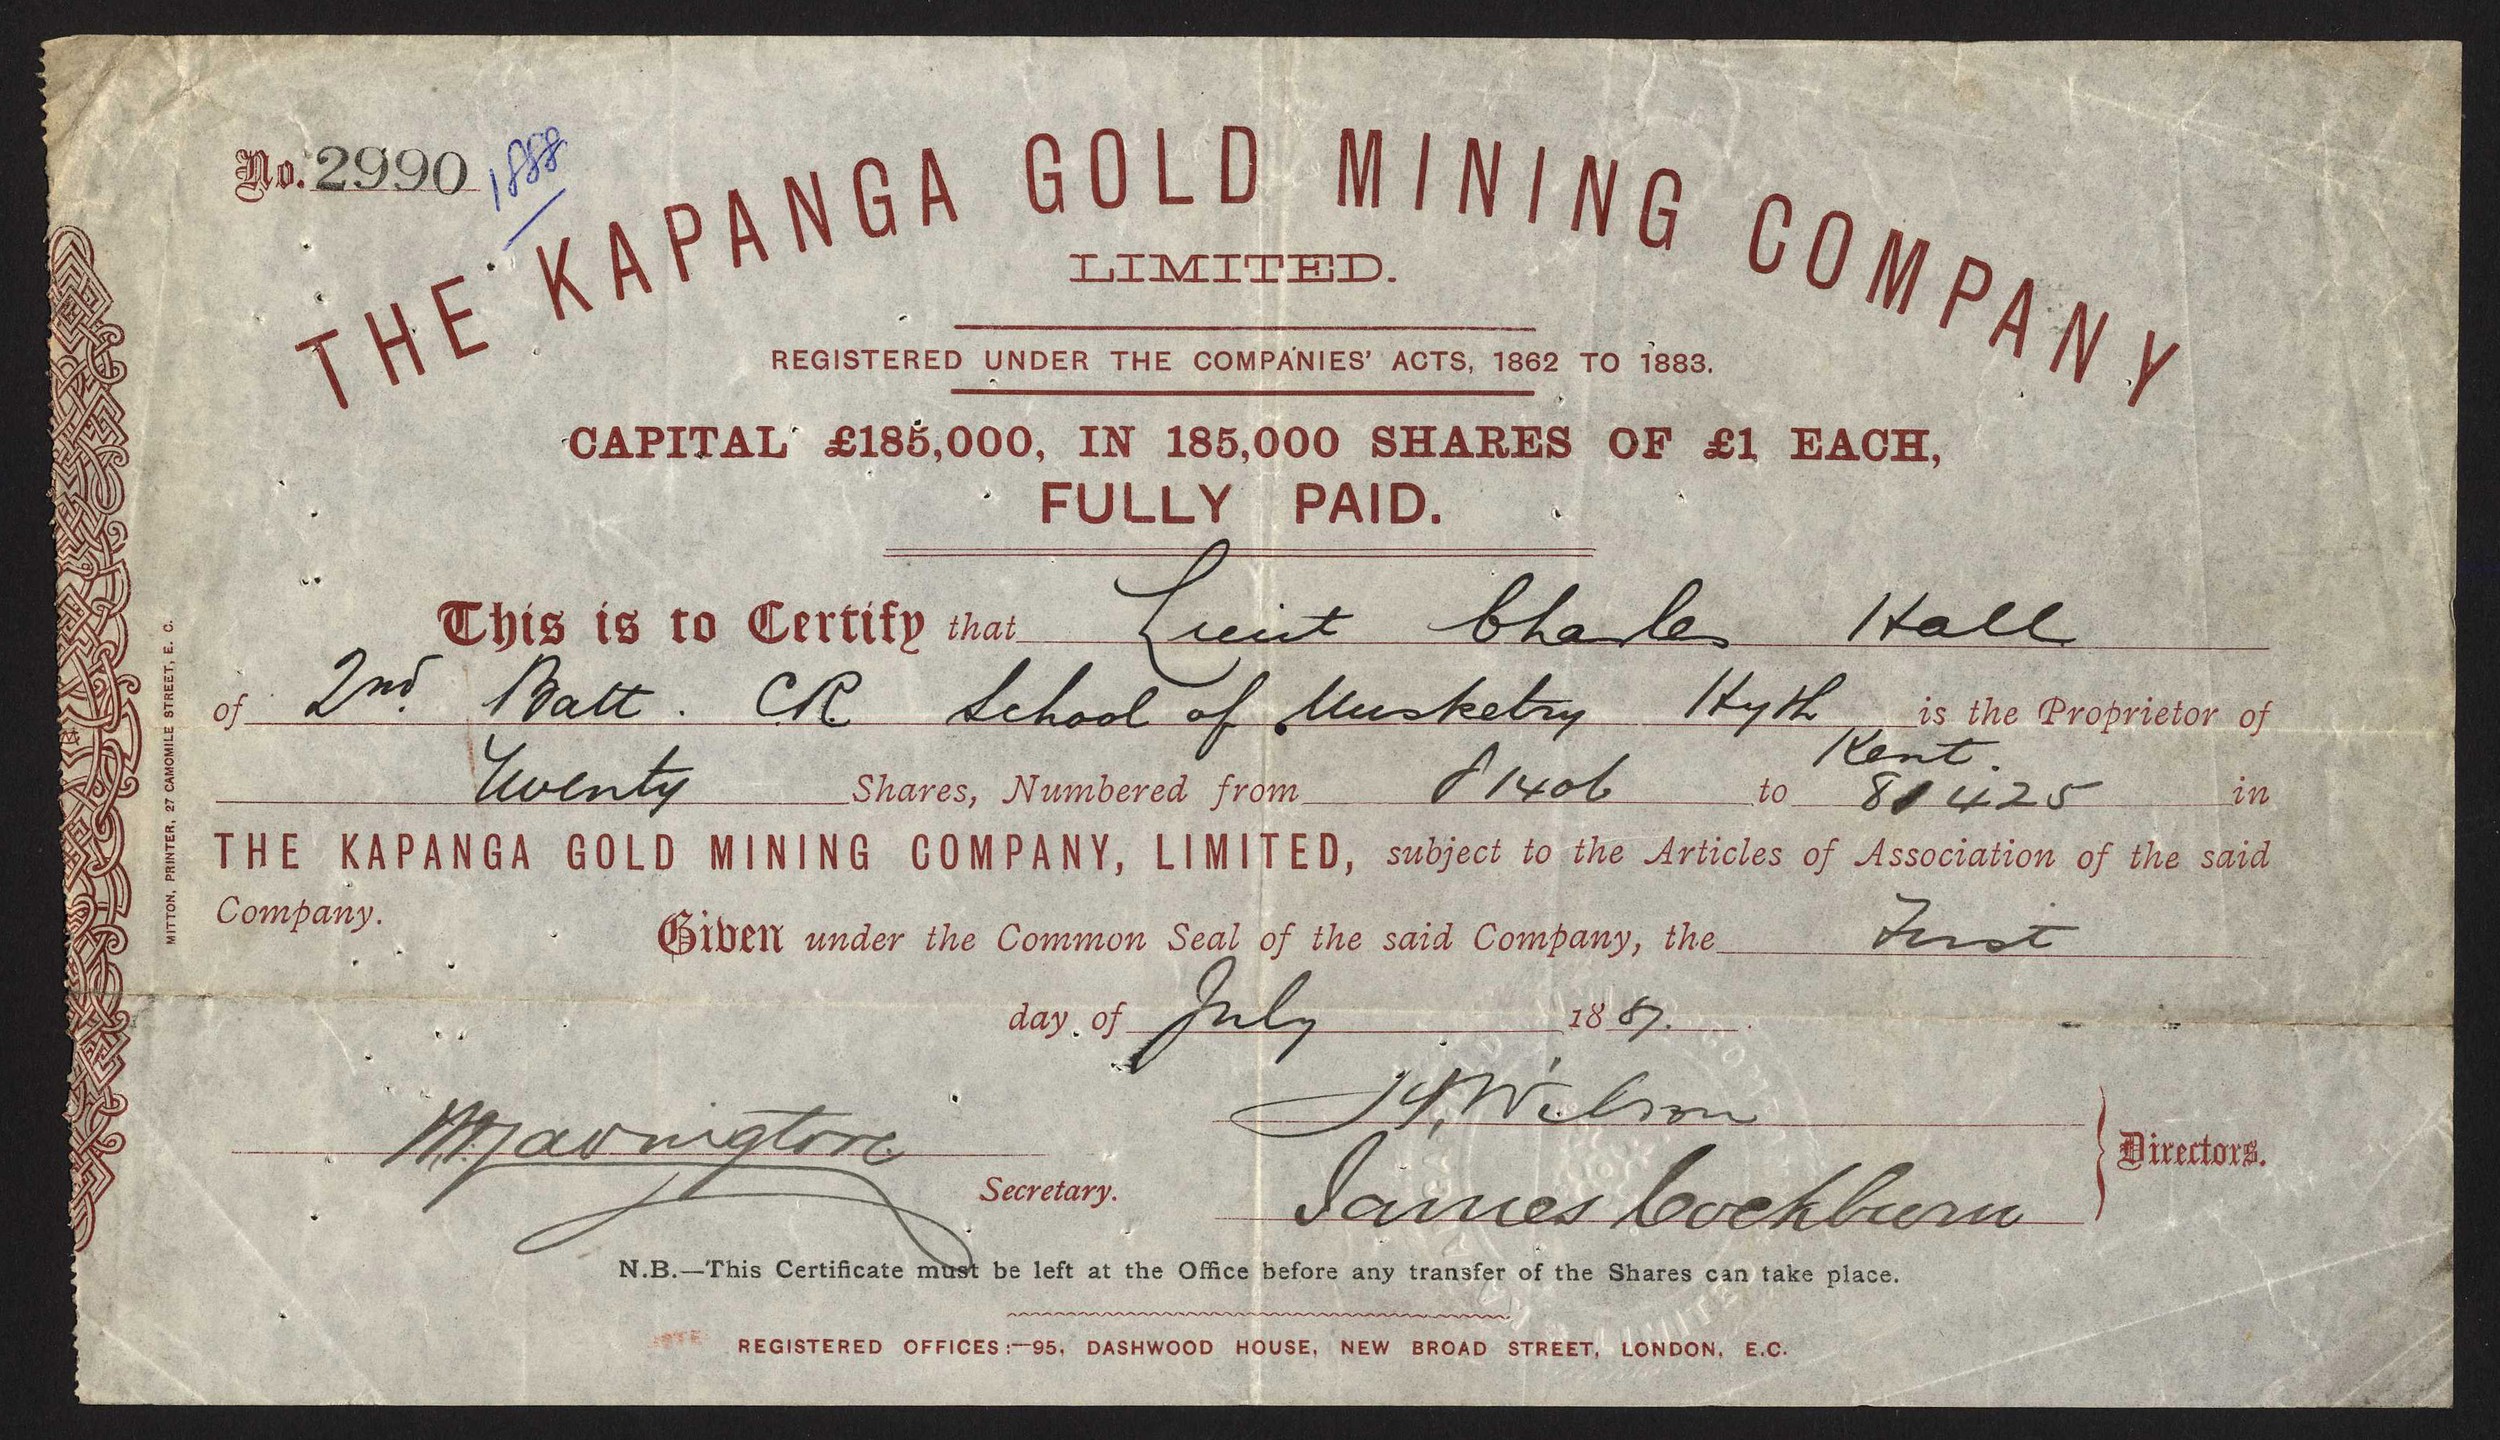 No. 2990 1888
THE KAPANGA GOLD MINING COMPANY
LIMITED.
REGISTERED UNDER THE COMPANIES' ACTS, 1862 TO 1883.
CAPITAL £185,000, IN 185,000 SHARES OF £1 EACH,
FULLY PAID.
This is to Certify that Lieut Charles Hall
of 2nd Batt. CR School of Musketry Hyth is the Proprietor of
Kent.
Twenty Shares, Numbered from 81406 to 81425 in
THE KAPANGA GOLD MINING COMPANY, LIMITED, subject to the Articles of Association of the said
Company.
Given under the Common Seal of the said Company, the First
day of July 1887.
Wilson
James Cockburn
Directors.
Secretary.
N.B.—This Certificate must be left at the Office before any transfer of the Shares can take place.
REGISTERED OFFICES:—95, DASHWOOD HOUSE, NEW BROAD STREET, LONDON, E.C.
MITTON, PRINTER, 27 CAMOMILE STREET, E. C.